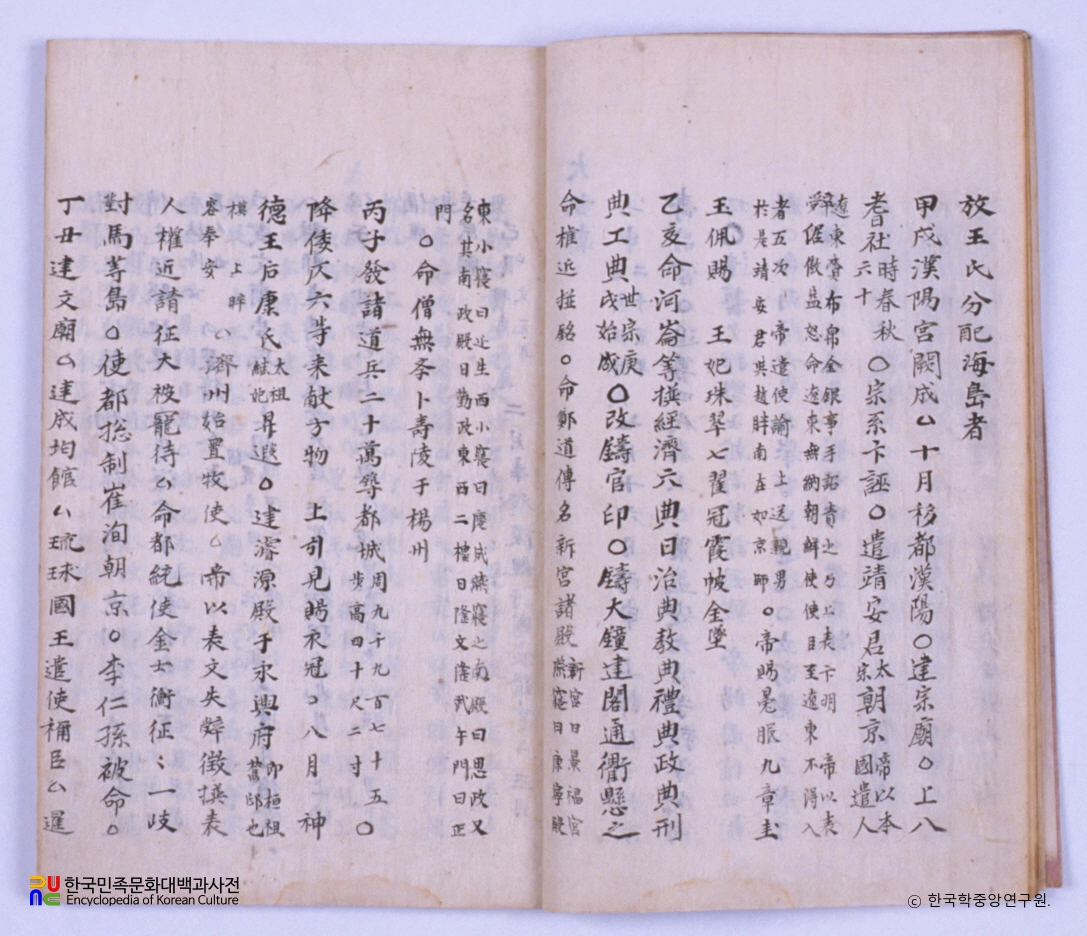 放王氏分配海島者
甲戍漢陽宮闕成ㄙ十月移都漢陽○建宗廟○上八
耆社時春秋六十○宗系卞誣○遣靖安君太宗朝京帝以本國遣人
遼東賫布帛金銀事手詔責之乃上表卞明帝以表
辞侮慢益怒命遼東無納朝鮮使使目至遼東不得入
者五次帝遣使諭上送親男
於是靖安君與趙胖南在如京師○帝賜冕服九章圭
玉佩賜王妃珠翠七翟冠霞帔金墜
乙亥命河崙等撰經濟六典曰治典敎典禮典政典刑
典工典世宗庚戌始成○改鑄官印○鑄大鐘建閣通衢懸之
命權近撰銘○命鄭道傳名新宮諸殿新宮曰景福宮燕寢曰康寧殿
東小寢曰延生西小寢曰慶成燕寢之南殿曰思政又
名其南政殿曰勤政東西二樓曰隆文隆武午門曰正
門○命僧無学卜壽陵于楊州
丙子發諸道兵二十萬尋都城周九千九百七十五步高四十尺二寸○
降倭六等来献方物上引見賜衣冠○八月神
德王后康氏太祖継妃昇遐○建濬源殿于永興府即桓祖舊邸也
模上晬容奉安○濟州始置牧使ㄙ帝以表文失辭徵撰表
人權近請征大被寵待ㄙ命都統使金士衡征〻一岐
對馬等島○使都捴制崔洵朝京○李仁孫被命○
丁丑建文廟ㄙ建成均館ㄙ琉球國王遣使稱臣ㄙ暹
한국민족문화대백과사전
Encyclopedia of Korean Culture
© 한국학중앙연구원.